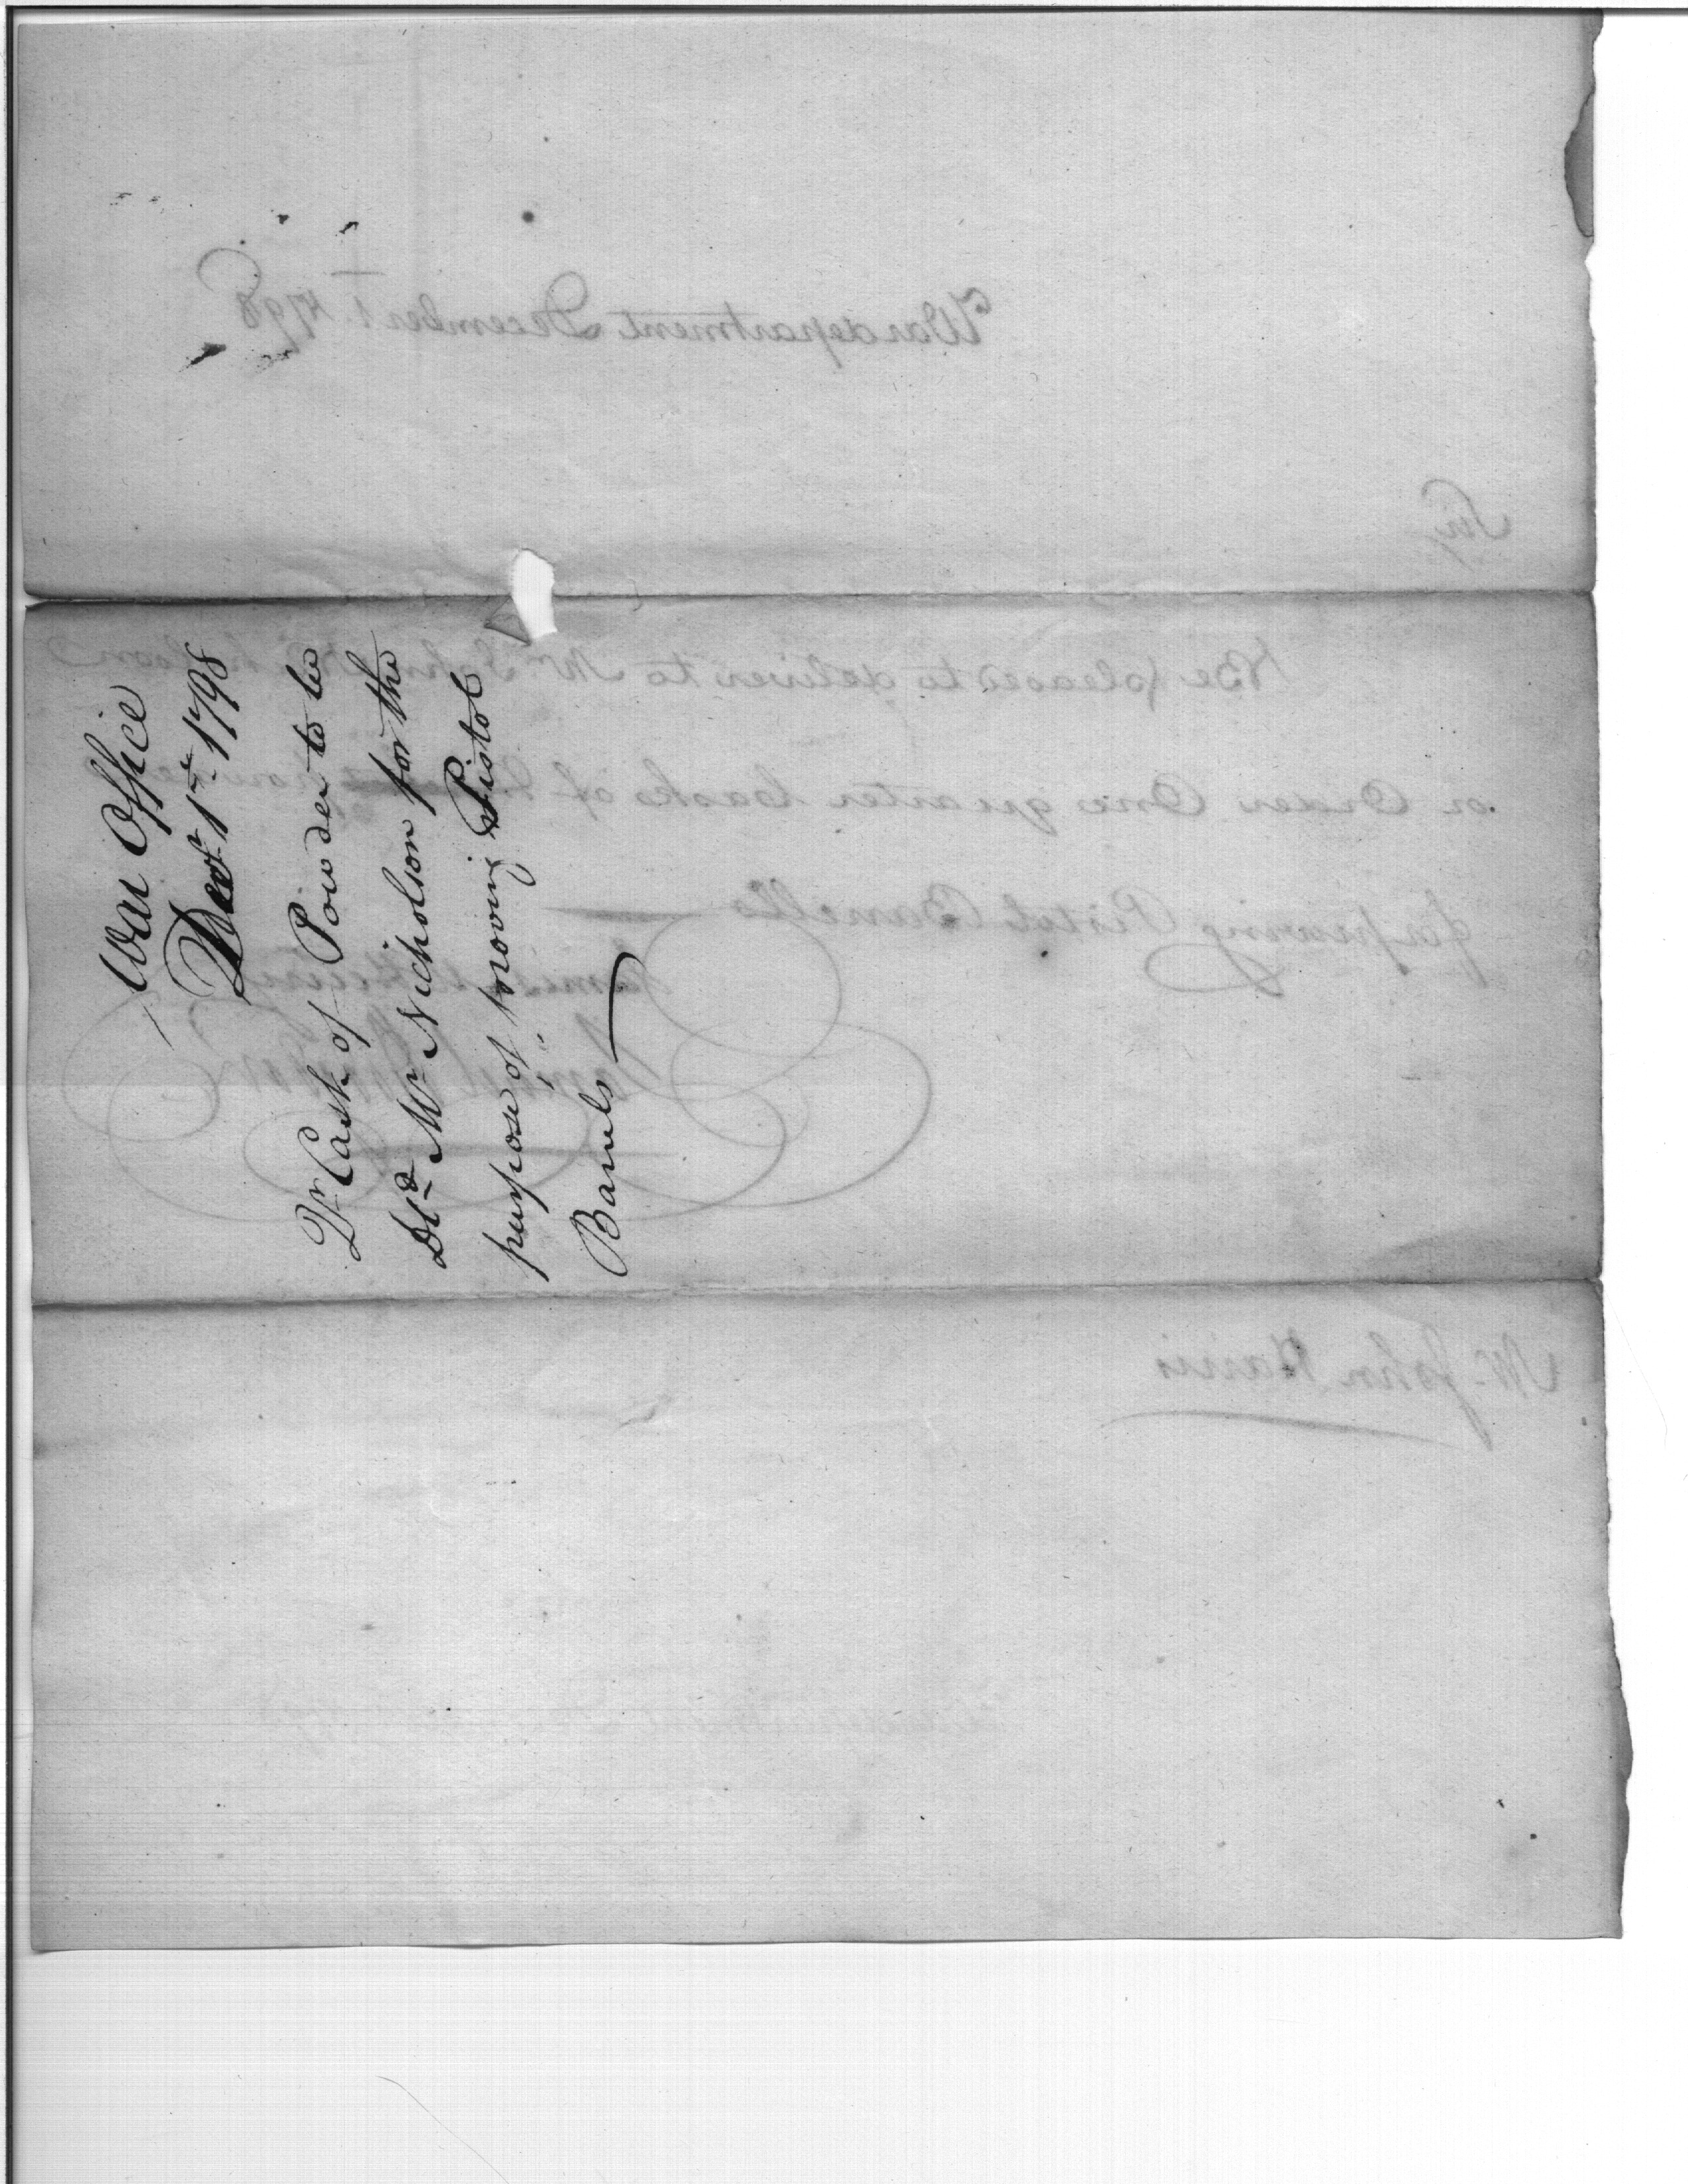 War Office
Decr 1st 1798
Qr Cask of Powder to be
Dld Mr Nicholson for the
purpose of proving Pistol
Barrels
War department December 1. 1798
Sir,
Be pleased to deliver to Mr John
or Order One quarter Casks of
for proving Pistol Barrells
James McHenry
Mr John Harris